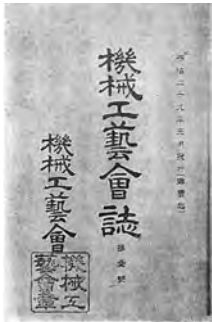 機械工藝會誌
第壹號
機械工藝會
機械工
藝會章